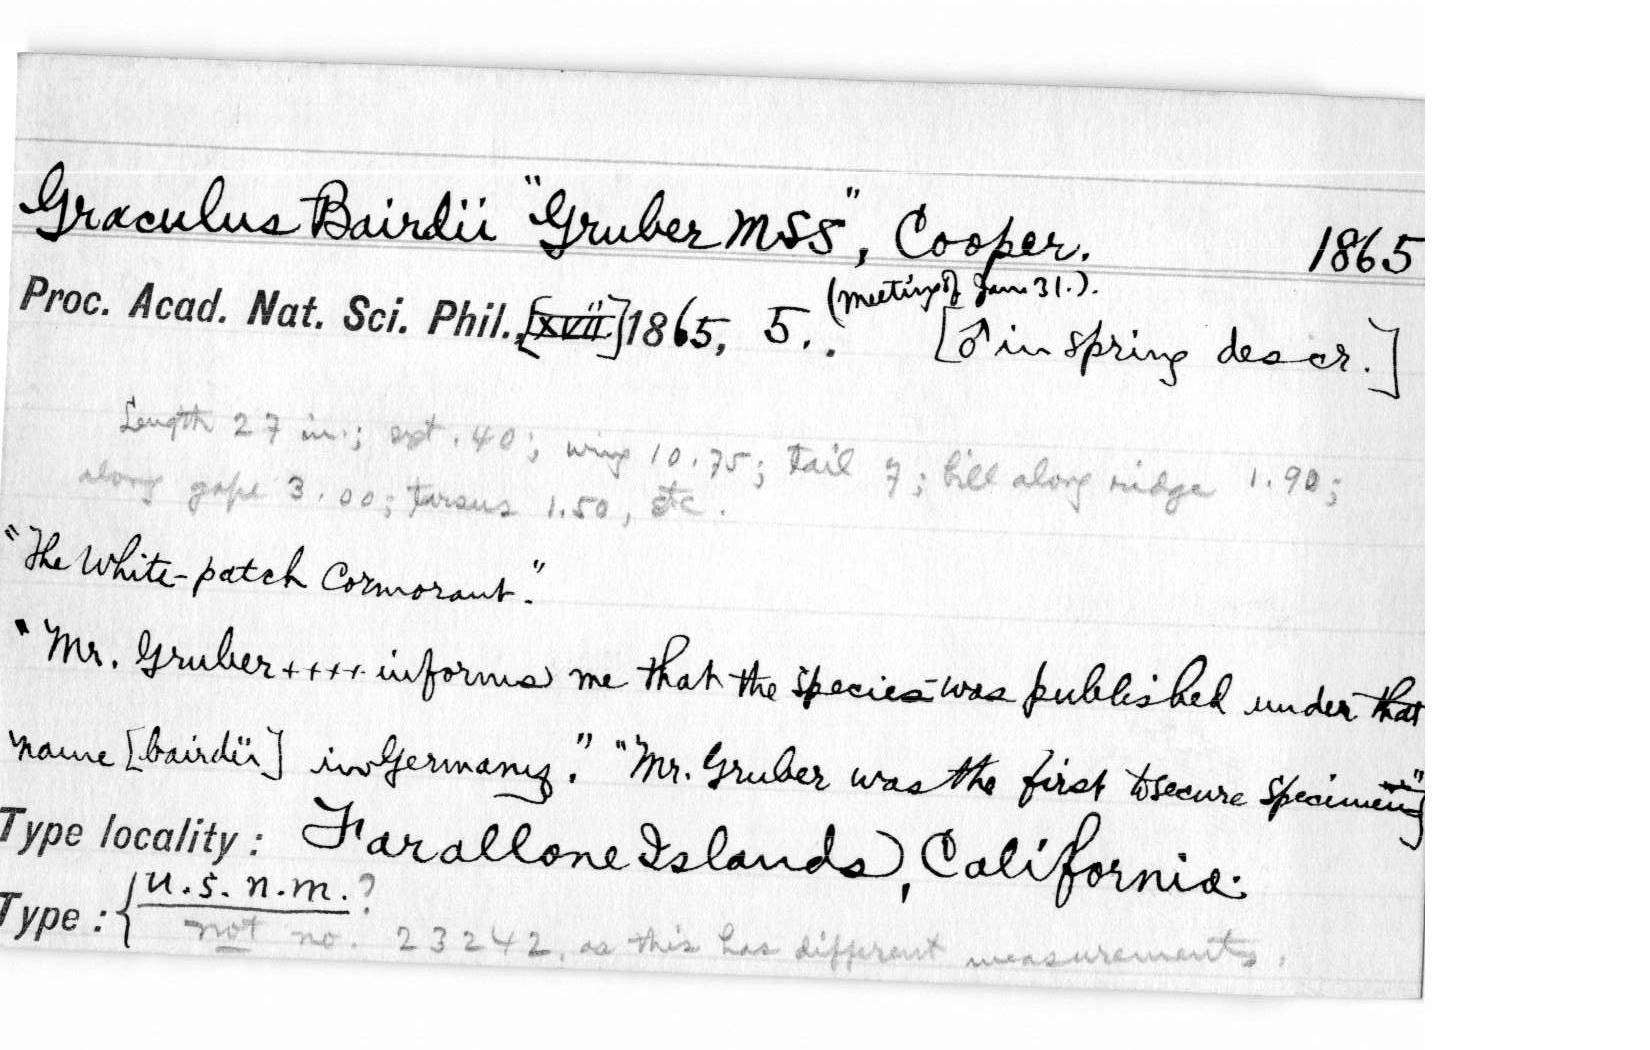 Graculus Bairdii "Gruber MSS", Cooper. 1865
(Meeting of Jan. 31.).
Proc. Acad. Nat. Sci. Phil., [xvii] 1865, 5.. [♂ in spring descr.]
Length 27 in.; ext. 40; wing 10.75; tail 7; bill along ridge 1.90;
along gape 3.00; tarsus 1.50, etc.
"The White-patch Cormorant."
"Mr. Gruber ++++ informs me that the species was published under that
name [bairdii] in Germany." "Mr. Gruber was the first to secure specimens"
Type locality: Farallone Islands, California.
Type: { U.S.N.M.?
not no. 23242, as this has different measurements.